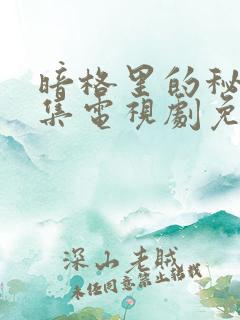 暗格里的秘
集电视剧免
深山老贼
未经同意禁止转载